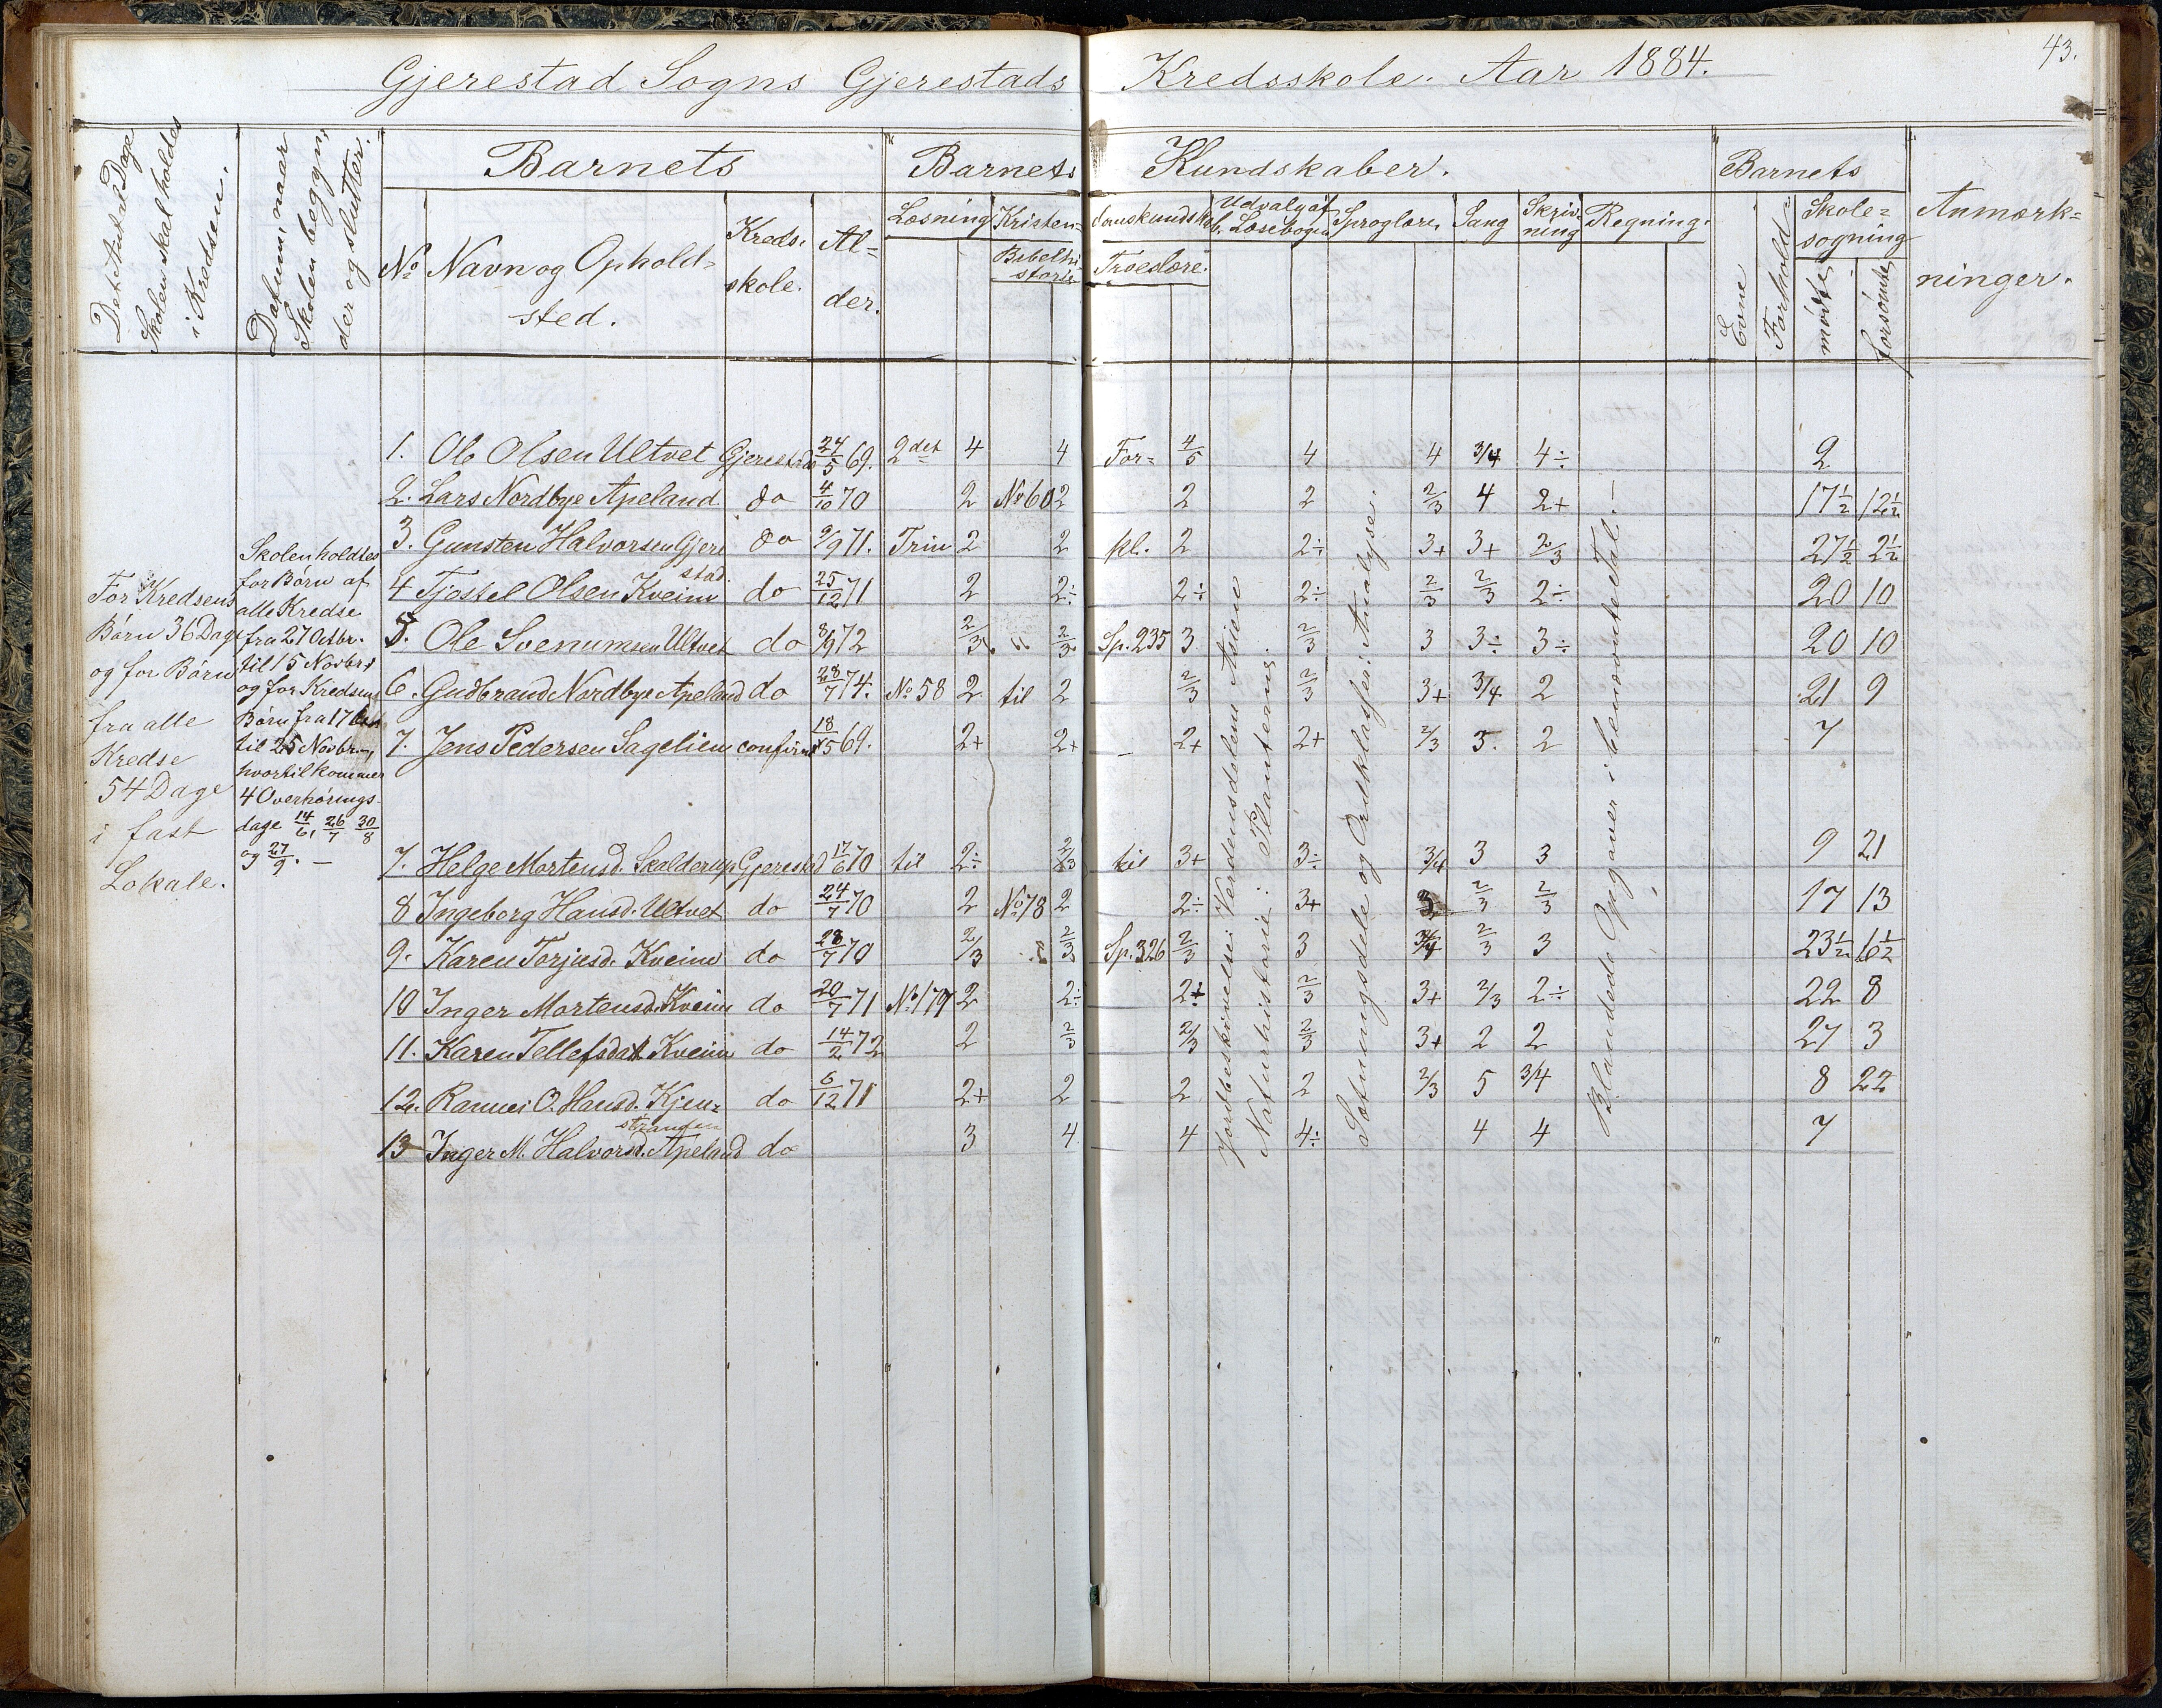 43.
Gjerestad Sogns Gjerestads Kredsskole. Aar 1884.
Det Antal Dage
Skolen skal holdes
i Kredsen.
Datum, naar
Skolen begyn-
der og slutter.
Barnets
No
Navn og Ophold-
sted.
Kreds-
skole.
Al-
der.
Barnets Kundskaber.
Læsning
Kristen-
domskundskab.
Bibelhi-
storie
Troeslære.
Udvalg af
Læsebogen
Sproglære
Sang
Skriv-
ning
Regning.
Barnets
Evne
Forhold
Skole-
søgning
mødte
forsømte
Anmærk-
ninger.
For Kredsens
Børn 36 Dage
og for Børn
fra alle
Kredse
54 Dage
i fast
Lokale.
Skolen holdtes
for Børn af
alle Kredse
fra 27 Octbr.
til 15 Novbr.
og for Kredsens
Børn fra 17
til 25 Novbr.,
hvortil kommer
4 Overhørings-
dage 14/6, 26/7 30/8
og 27/9. —
1. Ole Olsen Ultvet Gjerestad 24/5 69. 2det 4 4 For= 4/5 4 4 3/4 4÷ 2
2. Lars Nordbye Apeland do 4/10 70 2 No 60 2 2 2 2/3 4 2+ 17½ 12½
3. Gunsten Halvorsen Gjere
stad. do 9/9 71. Trin 2 2 kl. 2 2÷ 3+ 3+ 2/3 27½ 2½
4 Tjostel Olsen Kveim do 25/12 71 2 2÷ 2÷ 2÷ 2/3 2/3 2÷ 20 10
5. Ole Svenumsen Ultvet do 8/9 72 2/3 " 2/3 Sp. 235 3 2/3 3 3÷ 3÷ 20 10
6. Gudbrand Nordbye Apeland do 28/7 74. No 58 2 til 2 2/3 2/3 3+ 3/4 2 21 9
7. Jens Pedersen Sagelien confirm 18/5 69. 2+ 2+ — 2+ 2+ 2/3 5. 2 7
7. Helge Mortensd. Skalderup Gjerestad 17/6 70 til 2÷ 2/3 til 3+ 3÷ 3/4 3 3 9 21
8 Ingeborg Hansd. Ultvet do 24/7 70 2 No 78 2 2÷ 3+ 3 2/3 2/3 17 13
9. Karen Torjusd. Kveim do 28/7 70 2/3 2/3 Sp. 326 2/3 3 3/4 2/3 3 23½ 6½
10 Inger Mortensd. Kveim do 20/7 71 No 179 2 2÷ 2÷ 2/3 3+ 2/3 2÷ 22 8
11. Karen Tellefsdatt Kveim do 14/2 72 2 2/3 2/3 2/3 3+ 2 2 27 3
12. Rannei O. Hansd. Kjen-
stranden do 6/12 71 2+ 2 2 2 2/3 5 3/4 8 22
13 Inger M. Halvorsd. Apeland do 3 4 4 4÷ 4 4 7
Jordbeskrivelse: Verdensdelen Asien.
Naturhistorie: Planterne.
Sætningsdele og Ordklasser: Analyse.
Blandede Opgaver i benævnte Tal. —